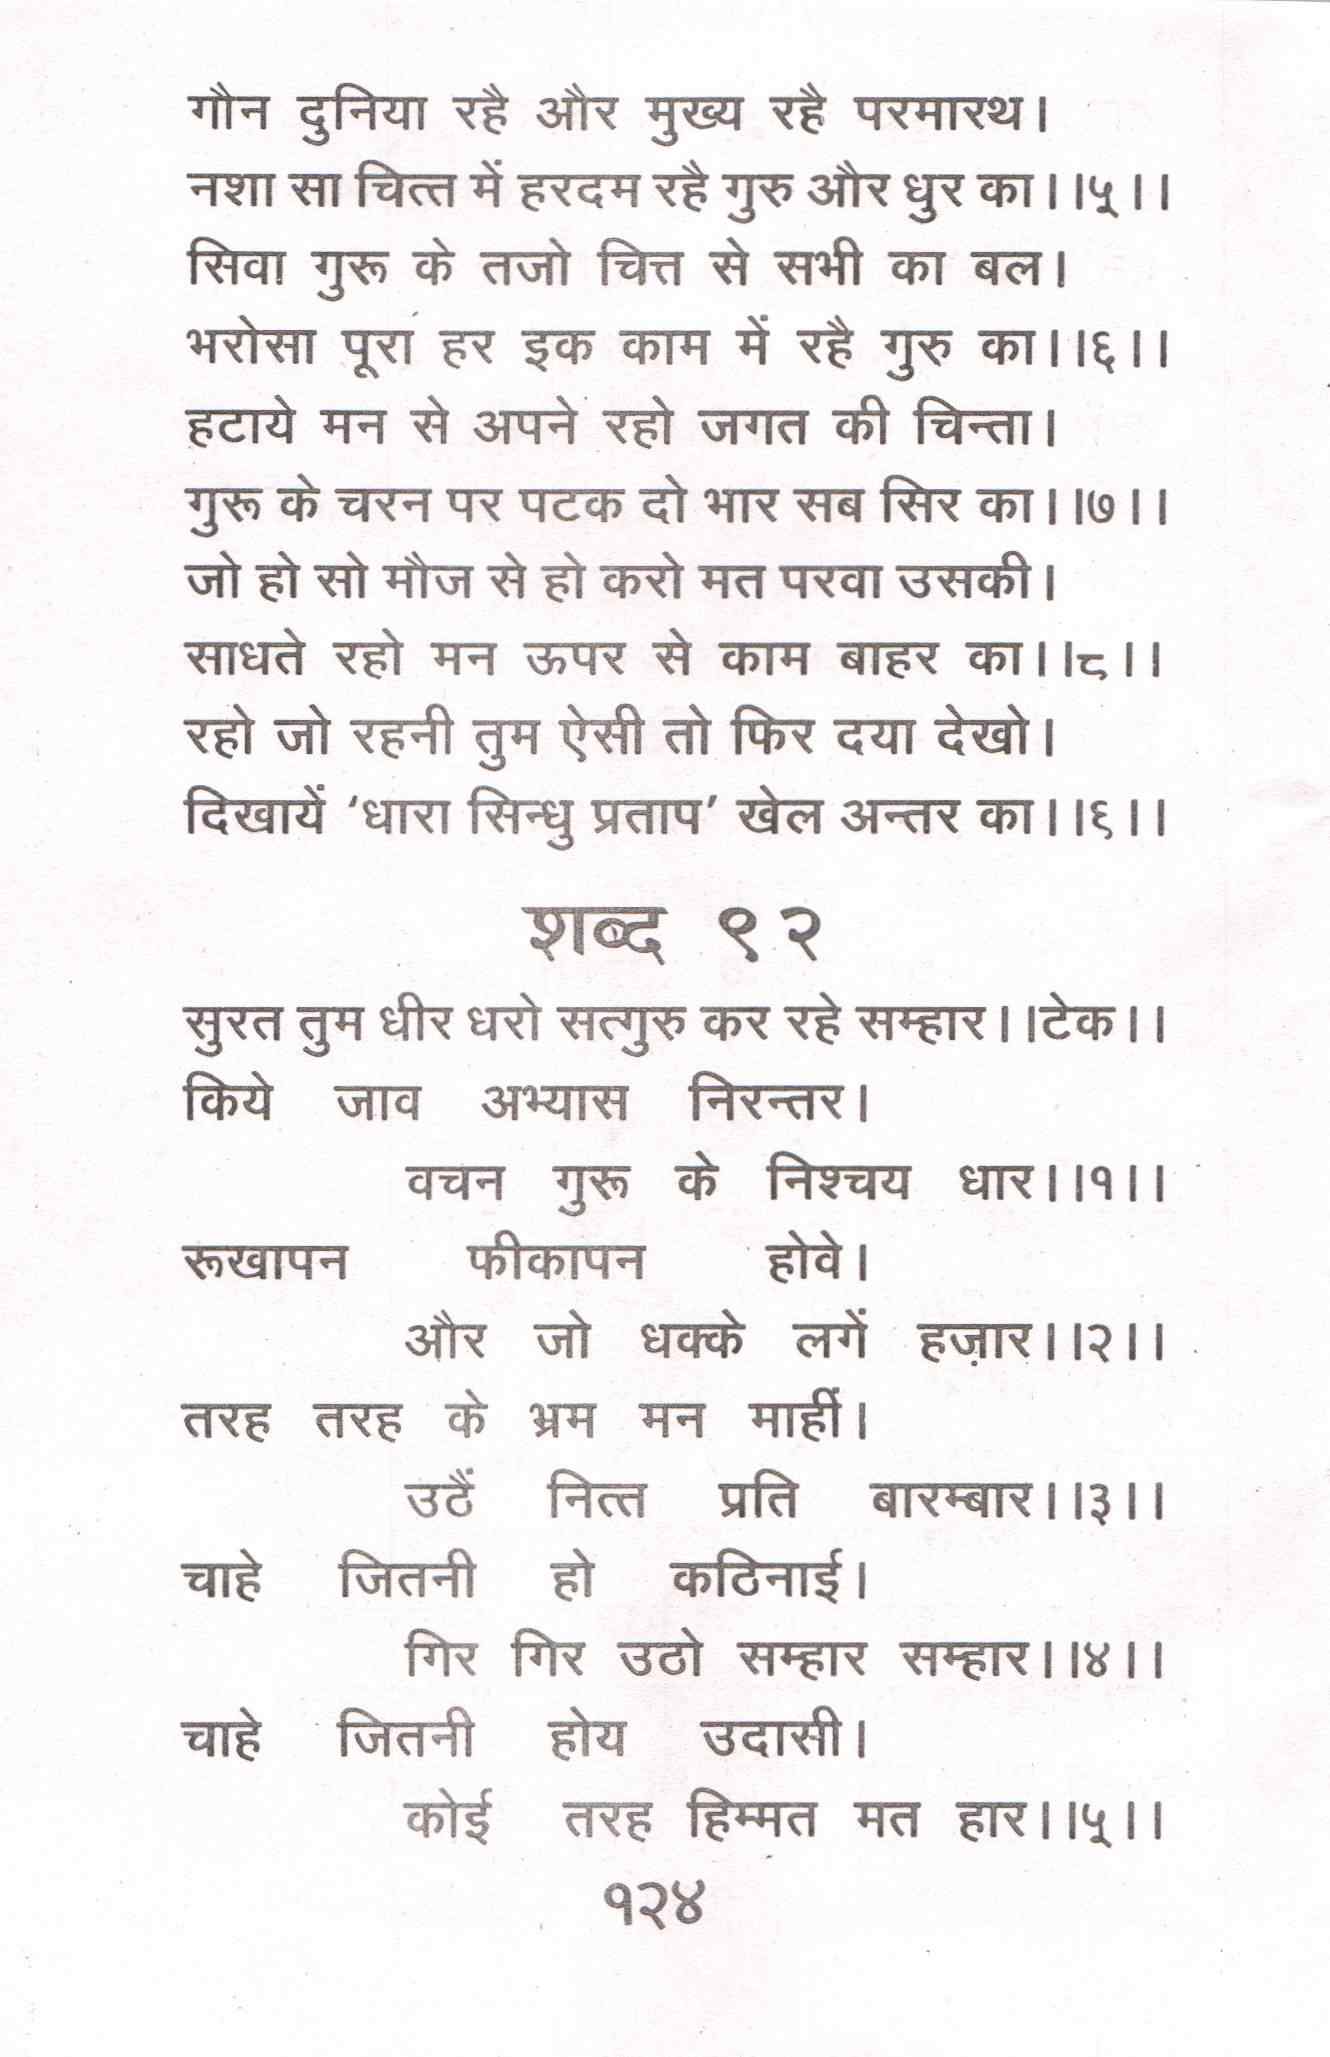 गौन दुनिया रहै और मुख्य रहै परमारथ।
नशा सा चित्त में हरदम रहै गुरु और धुर का।।५।।
सिवा गुरू के तजो चित्त से सभी का बल।
भरोसा पूरा हर इक काम में रहै गुरु का।।६।।
हटाये मन से अपने रहो जगत की चिन्ता।
गुरू के चरन पर पटक दो भार सब सिर का।।७।।
जो हो सो मौज से हो करो मत परवा उसकी।
साधते रहो मन ऊपर से काम बाहर का।।८।।
रहो जो रहनी तुम ऐसी तो फिर दया देखो।
दिखायें ‘धारा सिन्धु प्रताप’ खेल अन्तर का।।६।।
शब्द ९२
सुरत तुम धीर धरो सत्गुरु कर रहे सम्हार।।टेक।।
किये जाव अभ्यास निरन्तर।
वचन गुरू के निश्चय धार।।१।।
रूखापन फीकापन होवे।
और जो धक्के लगें हज़ार।।२।।
तरह तरह के भ्रम मन माहीं।
उठैं नित्त प्रति बारम्बार।।३।।
चाहे जितनी हो कठिनाई।
गिर गिर उठो सम्हार सम्हार।।४।।
चाहे जितनी होय उदासी।
कोई तरह हिम्मत मत हार।।५।।
१२४